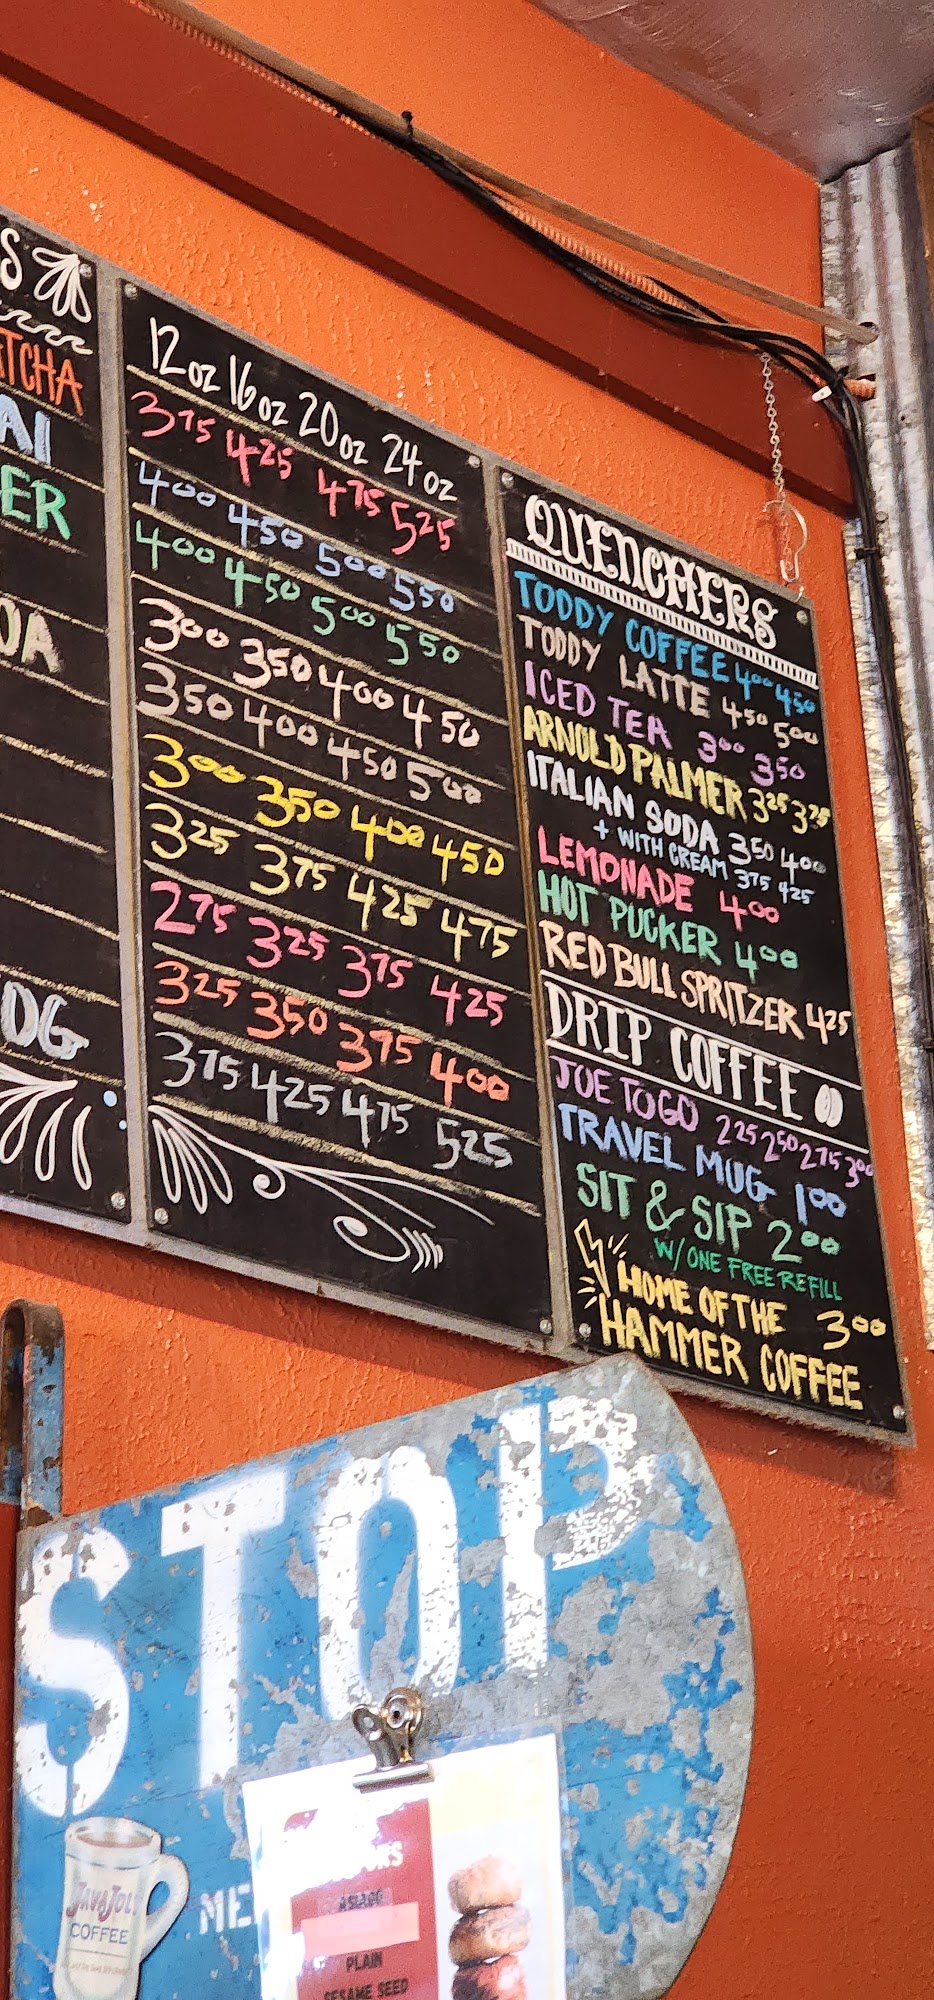 S
TCHA
AI
ER
OA
OG
12oz 16oz 20oz 24oz
375 425 475 525
400 450 500 550
400 450 500 550
300 350 400 450
350 400 450 500
300 350 400 450
325 375 425 475
275 325 375 425
325 350 375 400
375 425 475 525
QUENCHERS
TODDY COFFEE 400 450
TODDY LATTE 450 500
ICED TEA 300 350
ARNOLD PALMER 325 375
ITALIAN SODA 350 400
+ WITH CREAM 375 425
LEMONADE 400
HOT PUCKER 400
RED BULL SPRITZER 425
DRIP COFFEE
JOE TO GO 225 250 275 300
TRAVEL MUG 100
SIT & SIP 200
W/ ONE FREE REFILL
HOME OF THE 300
HAMMER COFFEE
STOP
JAVA JOE
COFFEE
ME
ASIAGO
PLAIN
SESAME SEED